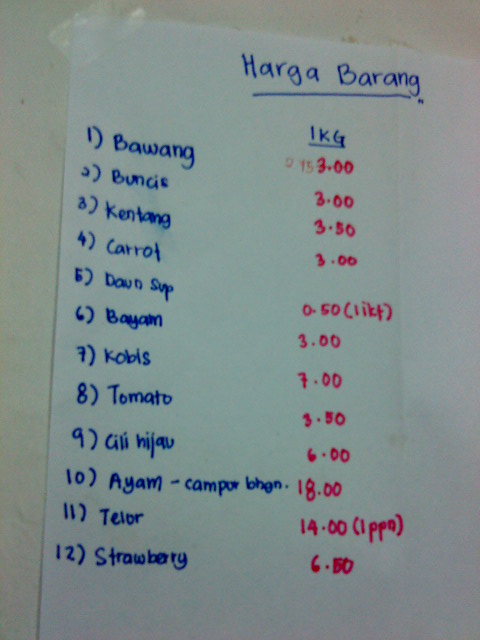 Harga Barang
1KG
1) Bawang 3.00
2) Buncis 3.00
3) Kentang 3.50
4) Carrot 3.00
5) Daun Sup 0.50 (1ikt)
6) Bayam 3.00
7) Kobis 7.00
8) Tomato 3.50
9) Cili hijau 6.00
10) Ayam - campur bhgn. 18.00
11) Telor 14.00 (1ppn)
12) Strawberry 6.50